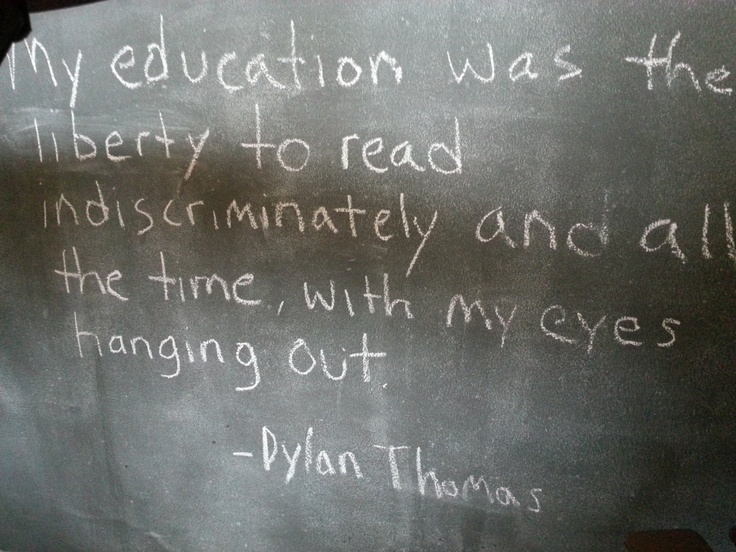 My education was the
liberty to read
indiscriminately and all
the time, with my eyes
hanging out.
-Dylan Thomas